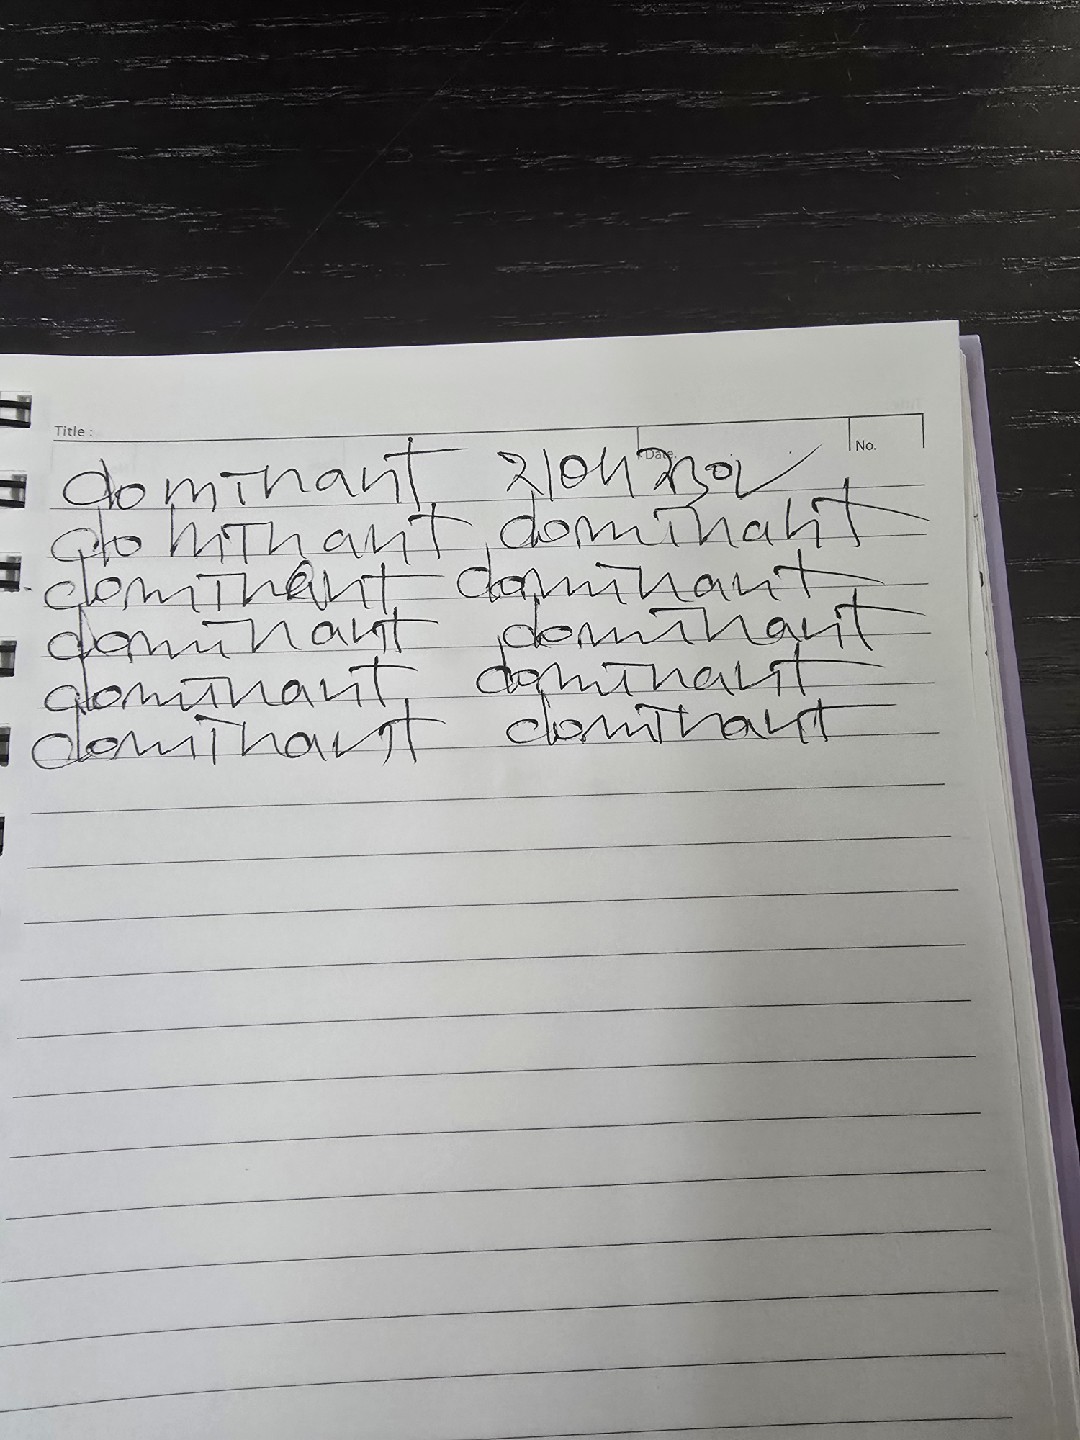 Title :
Date.
No.
dominant
dominant, dominant
dominant dominant
dominant dominant
dominant dominant
dominant dominant